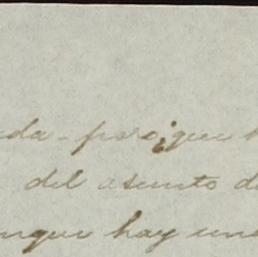 da - pero que
del asunto d
unque hay un